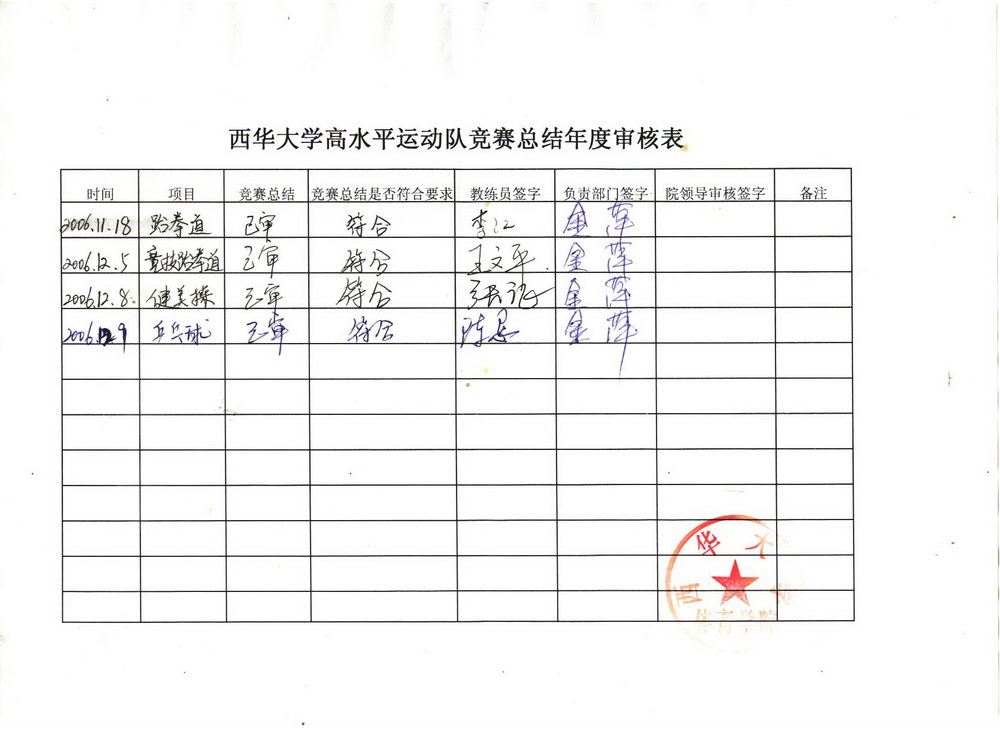 西华大学高水平运动队竞赛总结年度审核表
时间 项目 竞赛总结 竞赛总结是否符合要求 教练员签字 负责部门签字 院领导审核签字 备注
2006.11.18 跆拳道 已审 符合 李江 金萍
2006.12.5 竞技跆拳道 已审 符合 王文平 金萍
2006.12.8 健美操 已审 符合 金萍
2006.12.9 乒乓球 已审 符合 金萍
西华大学
体育学院